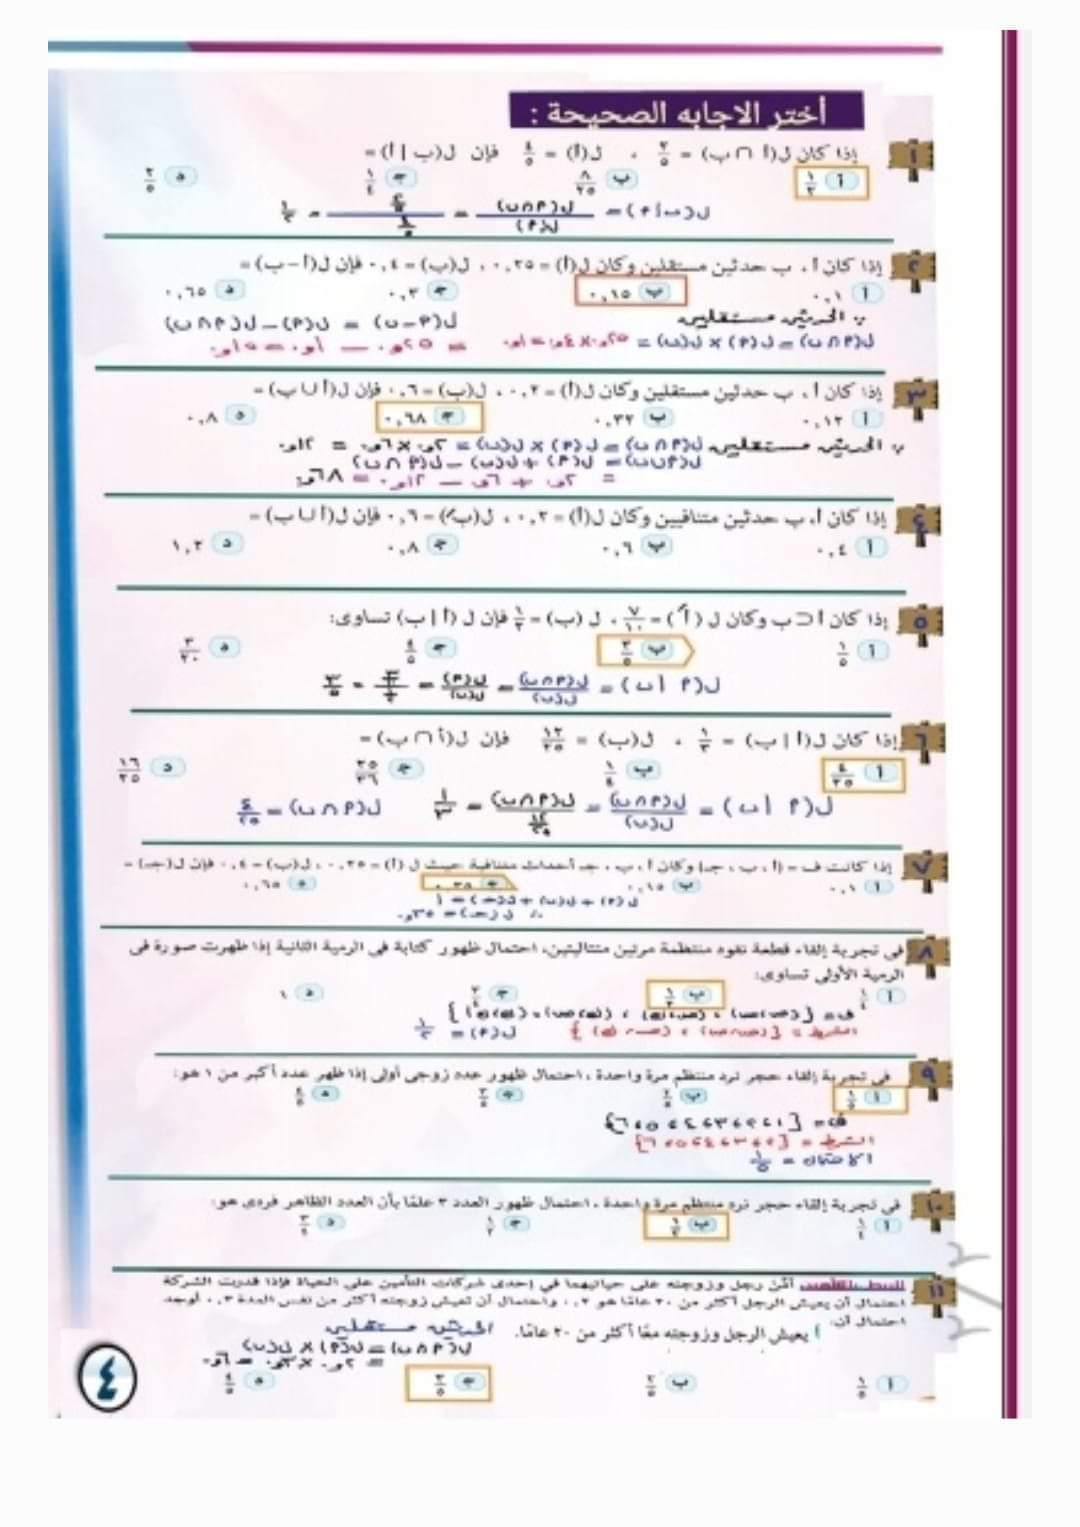 أختر الاجابه الصحيحة :
١ إذا كان ل(أ ∩ ب) = ٢/٥ ، ل(أ) = ٤/٥ فإن ل(ب | أ) =
أ ١/٢ ب ٨/٢٥ ج ١/٤ د ٢/٥
ل(ب|أ) = ل(أ∩ب)/ل(أ) = ١/٢
٢ إذا كان أ ، ب حدثين مستقلين وكان ل(أ) = ٠,٢٥ ، ل(ب) = ٠,٤ فإن ل(أ - ب) =
أ ٠,١ ب ٠,١٥ ج ٠,٣ د ٠,٦٥
∵ الحدثين مستقلين ل(أ-ب) = ل(أ) - ل(أ∩ب)
ل(أ∩ب) = ل(أ) × ل(ب) = ٠,٢٥ × ٠,٤ = ٠,١ = ٠,٢٥ - ٠,١ = ٠,١٥
٣ إذا كان أ ، ب حدثين مستقلين وكان ل(أ) = ٠,٢ ، ل(ب) = ٠,٦ فإن ل(أ ∪ ب) =
أ ٠,١٢ ب ٠,٣٢ ج ٠,٦٨ د ٠,٨
∵ الحدثين مستقلين ل(أ∩ب) = ل(أ) × ل(ب) = ٠,٢ × ٠,٦ = ٠,١٢
ل(أ∪ب) = ل(أ) + ل(ب) - ل(أ∩ب)
= ٠,٢ + ٠,٦ - ٠,١٢ = ٠,٦٨
٤ إذا كان أ، ب حدثين متنافيين وكان ل(أ) = ٠,٢ ، ل(ب) = ٠,٦ فإن ل(أ ∪ ب) =
أ ٠,٤ ب ٠,٦ ج ٠,٨ د ١,٢
٥ إذا كان أ ⊂ ب وكان ل (أ َ) = ٧/١٠ ، ل (ب) = ١/٢ فإن ل (أ | ب) تساوى:
أ ١/٥ ب ٣/٥ ج ٤/٥ د ٣/٢٠
ل(أ | ب) = ل(أ∩ب)/ل(ب) = ل(أ)/ل(ب) = ٣/٥
٦ إذا كان ل(أ | ب) = ١/٣ ، ل(ب) = ١٢/٢٥ فإن ل(أ ∩ ب) =
أ ٤/٢٥ ب ١/٤ ج ٢٥/٣٦ د ١٦/٢٥
ل(أ | ب) = ل(أ∩ب)/ل(ب) = ١/٣ ل(أ∩ب) = ٤/٢٥
٧ إذا كانت ف = {أ ، ب ، جـ} وكان أ ، ب ، جـ أحداث متنافية حيث ل (أ) = ٠,٢٥ ، ل(ب) = ٠,٤ فإن ل(جـ) =
أ ٠,١ ب ٠,١٥ ج د ٠,٦٥
ل(أ) + ل(ب) + ل(جـ) = ١
∴ ل(جـ) = ٠,٣٥
٨ فى تجربة إلقاء قطعة نقود منتظمة مرتين متتاليتين، احتمال ظهور كتابة فى الرمية الثانية إذا ظهرت صورة فى
الرمية الأولى تساوى:
أ ١/٤ ب ١/٢ ج ٣/٤ د ١
ف = {(ص،ص) ، (ص،ك) ، (ك،ص) ، (ك،ك)}
الشرط = {(ص،ص) ، (ص،ك)} ل(أ) = ١/٢
٩ فى تجربة إلقاء حجر نرد منتظم مرة واحدة ، احتمال ظهور عدد زوجى أولى إذا ظهر عدد أكبر من ١ هو:
أ ١/٥ ب ٢/٥ ج ٣/٥ د ٤/٥
ف = {١،٢،٣،٤،٥،٦}
الشرط = {٢،٣،٤،٥،٦}
الاحتمال = ١/٥
١٠ فى تجربة إلقاء حجر نرد منتظم مرة واحدة ، احتمال ظهور العدد ٣ علمًا بأن العدد الظاهر فردى هو:
أ ١/٤ ب ١/٣ ج ١/٢ د
١١ الربط بالتأمين أمّن رجل وزوجته على حياتيهما فى إحدى شركات التأمين على الحياة فإذا قدرت الشركة
احتمال أن يعيش الرجل أكثر من ٢٠ عامًا هو ٠,٢ واحتمال أن تعيش زوجته أكثر من نفس المدة ٠,٣ أوجد
احتمال أن:
أ يعيش الرجل وزوجته معًا أكثر من ٢٠ عامًا. الحدثين مستقلين
ل(أ∩ب) = ل(أ) × ل(ب)
= ٠,٢ × ٠,٣ = ٠,٠٦
أ ١/٥ ب ٢/٥ ج ٣/٥ د ٤/٥
٤